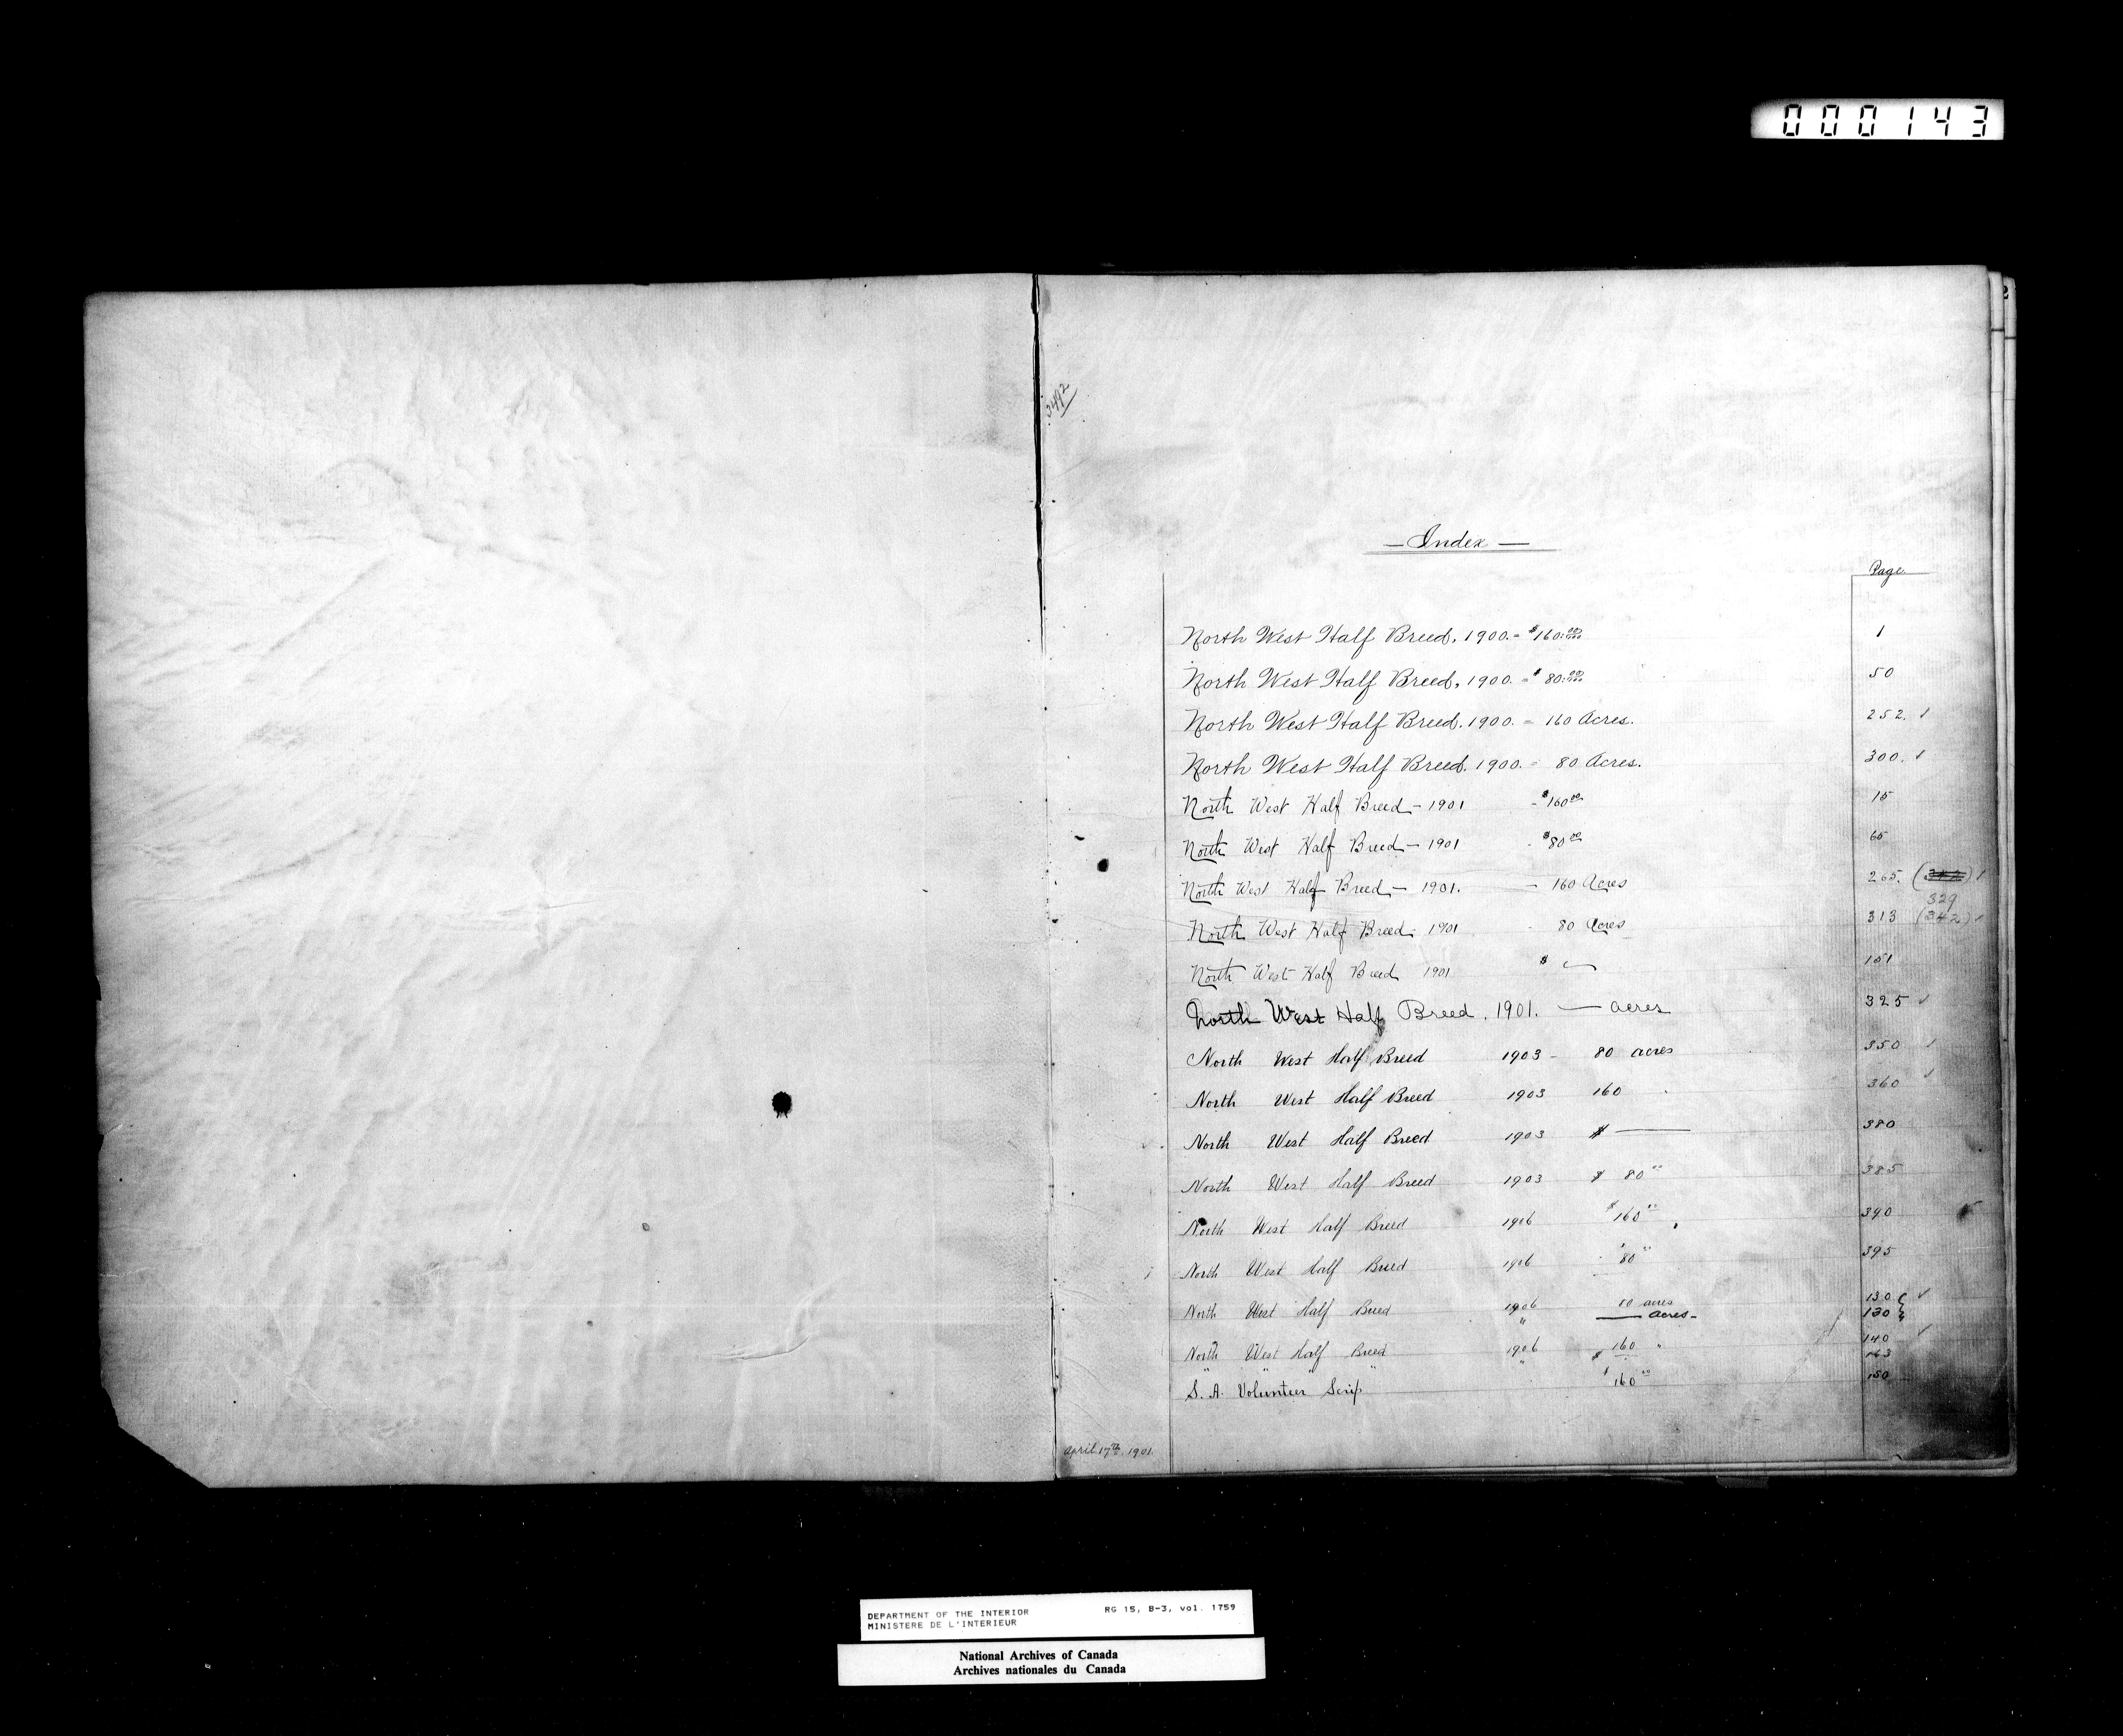 000143
2
3492
— Index —
Page
North West Half Breed, 1900. = $160.00 1
North West Half Breed, 1900. = $80.00 50
North West Half Breed. 1900. = 160 Acres. 252. ✓
North West Half Breed. 1900. = 80 Acres. 300. ✓
North West Half Breed — 1901 - $160.00 15
North West Half Breed — 1901 - $80.00 65
North West Half Breed — 1901. — 160 Acres 265. ( ) ✓
329
North West Half Breed - 1901 - 80 Acres 313 (342) ✓
North West Half Breed 1901 $ — 151
North West Half Breed. 1901. — acres 325 ✓
North West Half Breed 1903 - 80 acres 350 ✓
North West Half Breed 1903 160 " 360 ✓
North West Half Breed 1903 $ — 380
North West Half Breed 1903 $ 80.00 385
North West Half Breed 1906 $160.00 390
North West Half Breed 1906 $80.00 395
North West Half Breed 1906 80 acres 130 ✓
" — acres - 130
North West Half Breed 1906 160 " 140 ✓
" " " " $ — 163
S. A. Volunteer Scrip $160.00 150
April 17th, 1901.
DEPARTMENT OF THE INTERIOR RG 15, B-3, vol. 1759
MINISTERE DE L'INTERIEUR
National Archives of Canada
Archives nationales du Canada